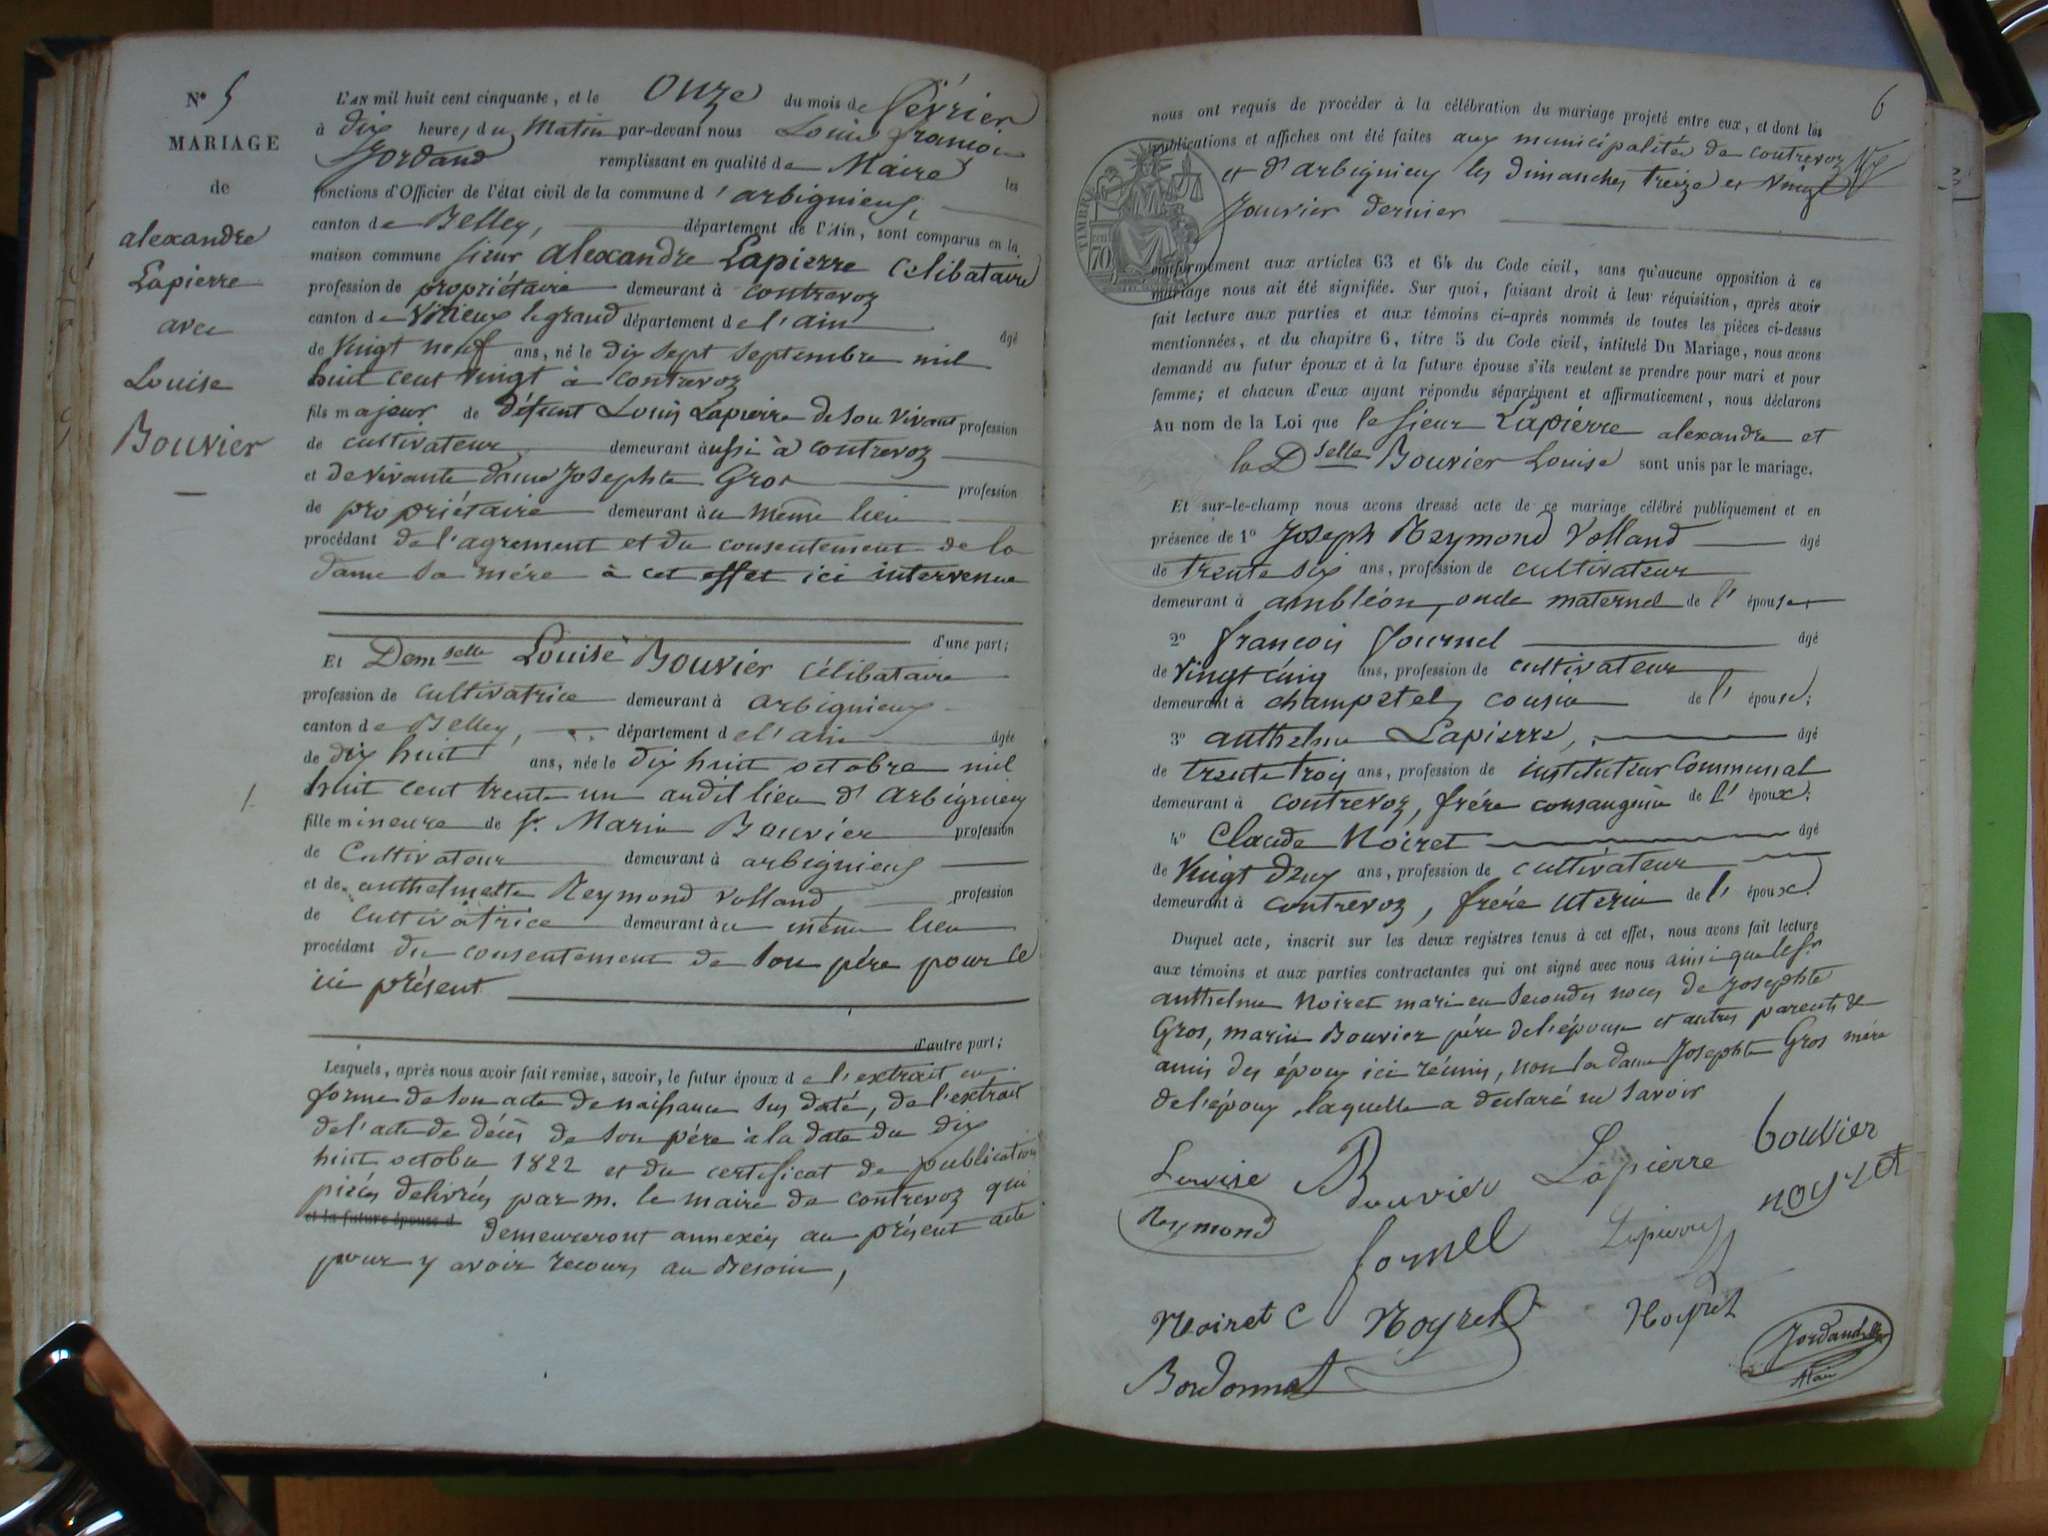 N° 5
MARIAGE
de
alexandre
Lapierre
avec
Louise
Bouvier
L'AN mil huit cent cinquante, et le Onze du mois de février
à dix heures du Matin par-devant nous Louis françois
Jordand remplissant en qualité de Maire les
fonctions d'Officier de l'état civil de la commune d'arbignieux,
canton de Belley, département de l'Ain, sont comparus en la
maison commune sieur alexandre Lapierre Célibataire
profession de propriétaire demeurant à contrevoz
canton de Virieux le grand département de l'ain âgé
de Vingt neuf ans, né le dix sept septembre mil
huit cent vingt à contrevoz
fils majeur de défunt Louis Lapierre de son vivant profession
de cultivateur demeurant aussi à contrevoz
et de vivante dame Josephte Gros profession
de propriétaire demeurant au même lieu
procédant de l'agrement et du consentement de la
dame sa mére à cet effet ici intervenue
d'une part;
Et Demselle Louise Bouvier Célibataire
profession de cultivatrice demeurant à arbignieux
canton de Belley, département de l'ain âgée
de dix huit ans, née le dix huit octobre mil
huit cent trente un audit lieu d'arbignieux
fille mineure de sr. Marin Bouvier profession
de Cultivateur demeurant à arbignieux
et de anthelmette Reymond Volland profession
de Cultivatrice demeurant au même lieu
procédant du consentement de son pére pour ce
ici présent
d'autre part;
Lesquels, après nous avoir fait remise, savoir, le futur époux de l'extrait en
forme de son acte de naissance sus daté, de l'extrait
de l'acte de décès de son pére à la date du dix
huit octobre 1822 et du certificat de publication
pièces delivrées par m. le maire de contrevoz qui
et la future épouse d demeureront annexées au présent acte
pour y avoir recours au Besoin,
6
nous ont requis de procéder à la célébration du mariage projeté entre eux, et dont les
publications et affiches ont été faites aux municipalités de contrevoz
et d'arbignieux les dimanches treize et vingt
Janvier dernier
TIMBRE
70
conformément aux articles 63 et 64 du Code civil, sans qu'aucune opposition à ce
mariage nous ait été signifiée. Sur quoi, faisant droit à leur réquisition, après avoir
fait lecture aux parties et aux témoins ci-après nommés de toutes les pièces ci-dessus
mentionnées, et du chapitre 6, titre 5 du Code civil, intitulé Du Mariage, nous avons
demandé au futur époux et à la future épouse s'ils veulent se prendre pour mari et pour
femme; et chacun d'eux ayant répondu séparément et affirmativement, nous déclarons
Au nom de la Loi que le sieur Lapierre alexandre et
la Dselle Bouvier Louise sont unis par le mariage.
Et sur-le-champ nous avons dressé acte de ce mariage célébré publiquement et en
présence de 1° Joseph Reymond Volland âgé
de trente six ans, profession de cultivateur
demeurant à ambléon, oncle maternel de l'épouse
2° françois fournel âgé
de vingt cinq ans, profession de cultivateur
demeurant à champetel, cousin de l'épouse;
3° anthelme Lapierre, âgé
de trente trois ans, profession de instituteur Communal
demeurant à contrevoz, frére consanguin de l'époux;
4° Claude Noiret âgé
de Vingt deux ans, profession de cultivateur
demeurant à contrevoz, frére uterin de l'époux.
Duquel acte, inscrit sur les deux registres tenus à cet effet, nous avons fait lecture
aux témoins et aux parties contractantes qui ont signé avec nous ainsi que le sr.
anthelme Noiret mari en secondes noces de Josephte
Gros, marin Bouvier pére de l'épouse et autres parents &
amis des époux ici réunis, non la dame Josephte Gros mére
de l'époux, laquelle a déclaré ne savoir
Louise Bouvier Lapierre bouvier
Reymond fornel Lapierre noyret
Noiret C Noyret Noyret
Bordonnat Jordand